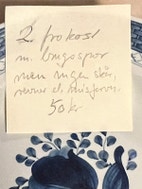 2 frokost
m. brugsspor
men ingen skår,
revner el. krusforn.
50 kr